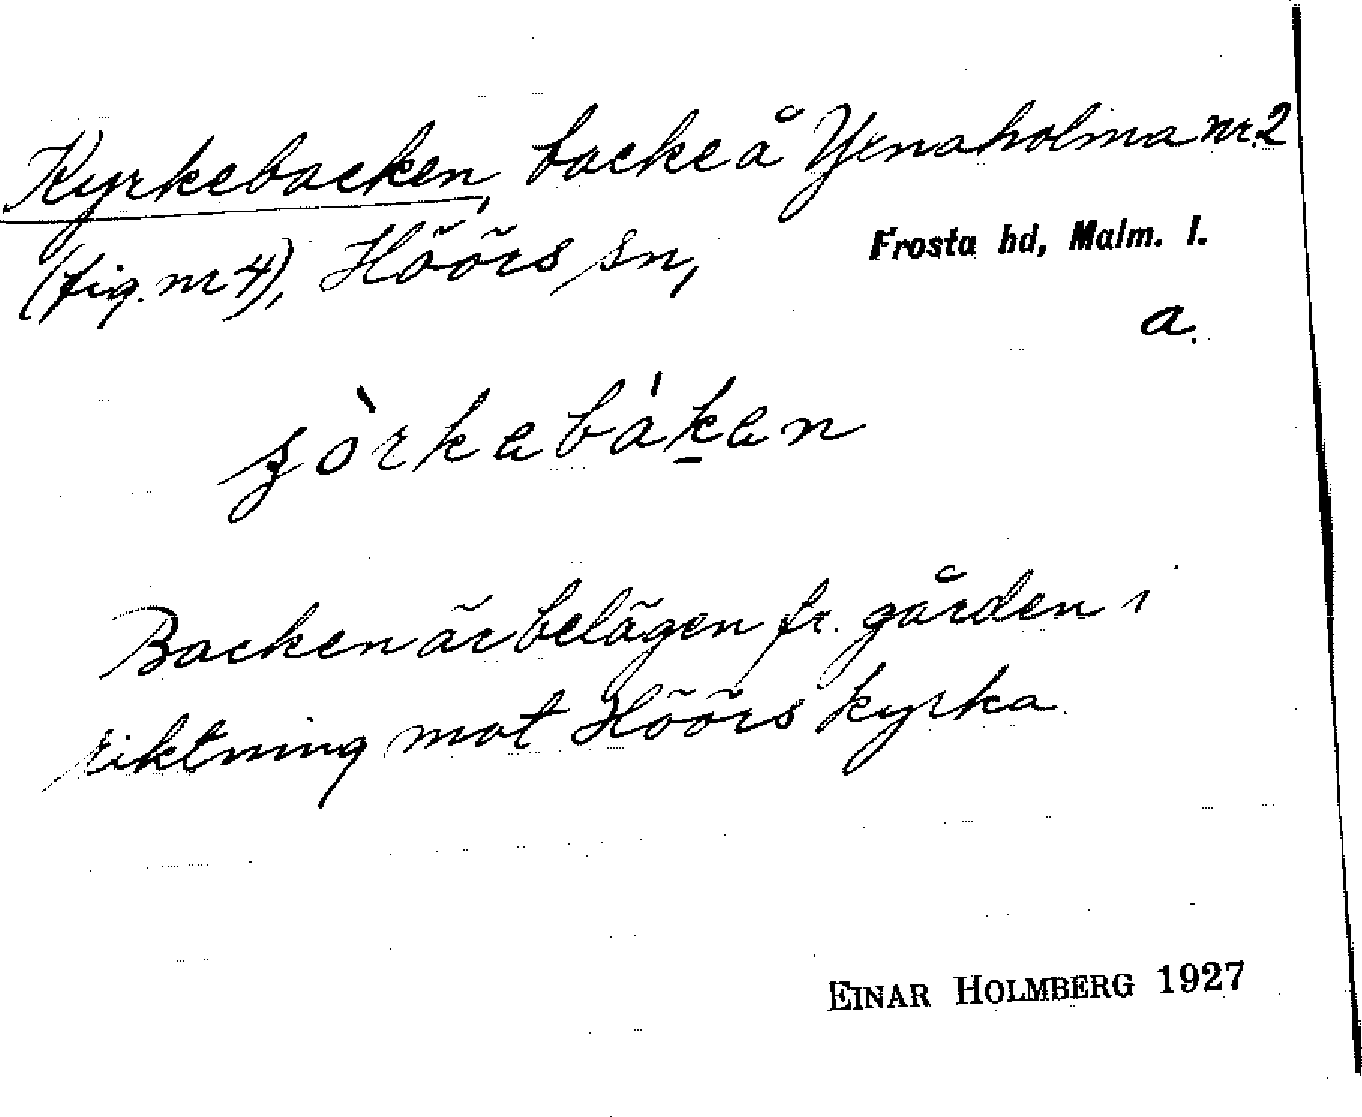 Kyrkebacken, backe å Yxnaholma nr 2
(fig. nr 4), Höörs sn,
Frosta hd, Malm. l.
a.
Backen är belägen fr. gården i
riktning mot Höörs kyrka
EINAR HOLMBERG 1927